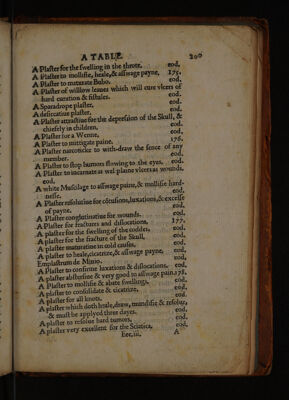 A TABLE. 200
A Plaster for the swelling in the throte, eod.
A Plaster to mollifie, heale, & asswage payne, 175.
A Plaster to maturate Bubo. eod.
A Plaster of willow leaues which will cure vlcers of
hard curation & fistules. eod.
A Sparadrope plaster, eod.
A desiccatiue plaster. eod.
A Plaster attractiue for the depression of the Skull, &
chiefely in children. eod.
A Plaster for a Wenne. eod.
A Plaster to mittigate paine. 176.
A Plaster narcoticke to with-draw the sence of any
member. eod.
A Plaster to stop humors flowing to the eyes, eod.
A Plaster to incarnate as wel plaine vlcers as wounds.
eod.
A white Muscilage to asswage paine, & mollifie hard-
nesse. eod.
A Plaster resolutiue for cõtusions, luxations, & excesse
of payne. eod.
A Plaster conglutinatiue for wounds. eod.
A Plaster for fractures and dislocations. 177.
A plaster for the swelling of the coddes, eod.
A plaster for the fracture of the Skull, eod.
A plaster maturatiue in cold causes, eod.
A plaster to heale, cicatrize, & asswage payne, eod.
Emplastrum de Minio. eod.
A Plaster to confirme luxations & dislocations. eod.
A plaster abstersiue & very good to asswage pain. 178.
A Plaster to mollifie & abate swellings, eod.
A plaster to consolidate & cicatrize, eod.
A plaster for all knots. eod.
A plaster which doth heale, draw, mundifie & resolue,
& must be applyed three dayes. eod.
A plaster to resolue hard tumors, eod.
A plaster very excellent for the Sciatica, eod.
Eee.iii. A